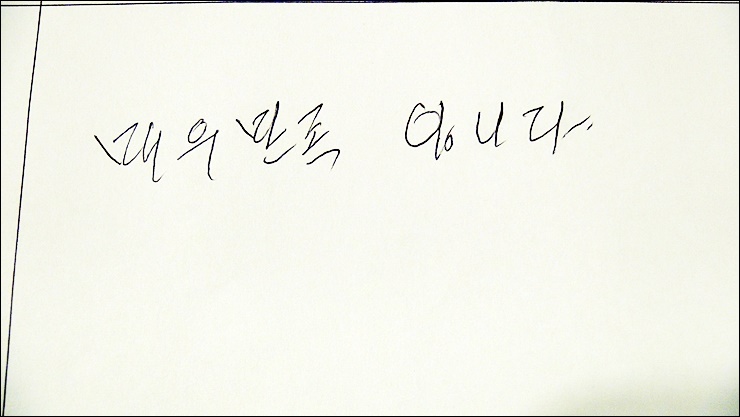 매우만족 입니다.